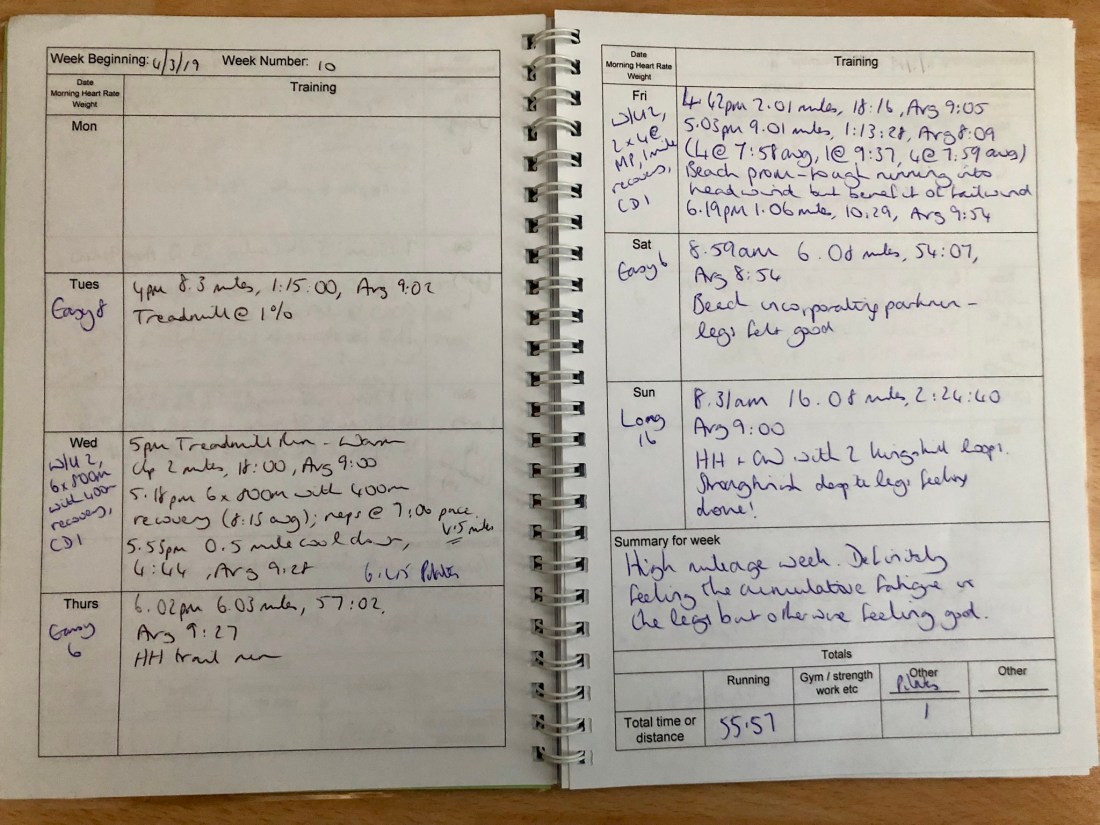 Week Beginning: 4/3/19 Week Number: 10
Date
Morning Heart Rate
Weight
Training
Mon
Tues
Easy 8
4pm 8.3 miles, 1:15.00, Avg 9:02
Treadmill @ 1%
Wed
W/U 2,
6x800m
with 400m
recovery,
CD1
5pm Treadmill Run - Warm
Up 2 miles, 18:00, Avg 9:00
5.18pm 6x800m with 400m
recovery (8:15 avg); reps @ 7:00 pace
4.5 miles
5.55pm 0.5 mile cool down,
4:44, Avg 9:28 6.45 Pilates
Thurs
Easy
6
6.02pm 6.03 miles, 57:02,
Avg 9:27
HH trail run
Date
Morning Heart Rate
Weight
Training
Fri
W/U 2,
2x4@
MP, 1 mile
recovery,
CD1
4.42pm 2.01 miles, 18:16, Avg 9:05
5.03pm 9.01 miles, 1:13:28, Avg 8:09
(4@ 7:58 avg, 1@ 9:37, 4@ 7:59 avg)
Beach prom - tough running into
headwind but benefit of tailwind
6.19pm 1.06 miles, 10.29, Avg 9:54
Sat
Easy 6
8.59am 6.08 miles, 54:07,
Avg 8:54
Beach incorporating parkrun -
legs felt good
Sun
Long
16
8.31am 16.08 miles, 2:24:40
Avg 9:00
HH + CW with 2 Kingshill loops.
Strong finish despite legs feeling
done!
Summary for week
High mileage week. Definitely
feeling the cumulative fatigue in
the legs but otherwise feeling good.
Totals
Running
Gym / strength
work etc
Other
Pilates
Other
Total time or
distance
55.57
1